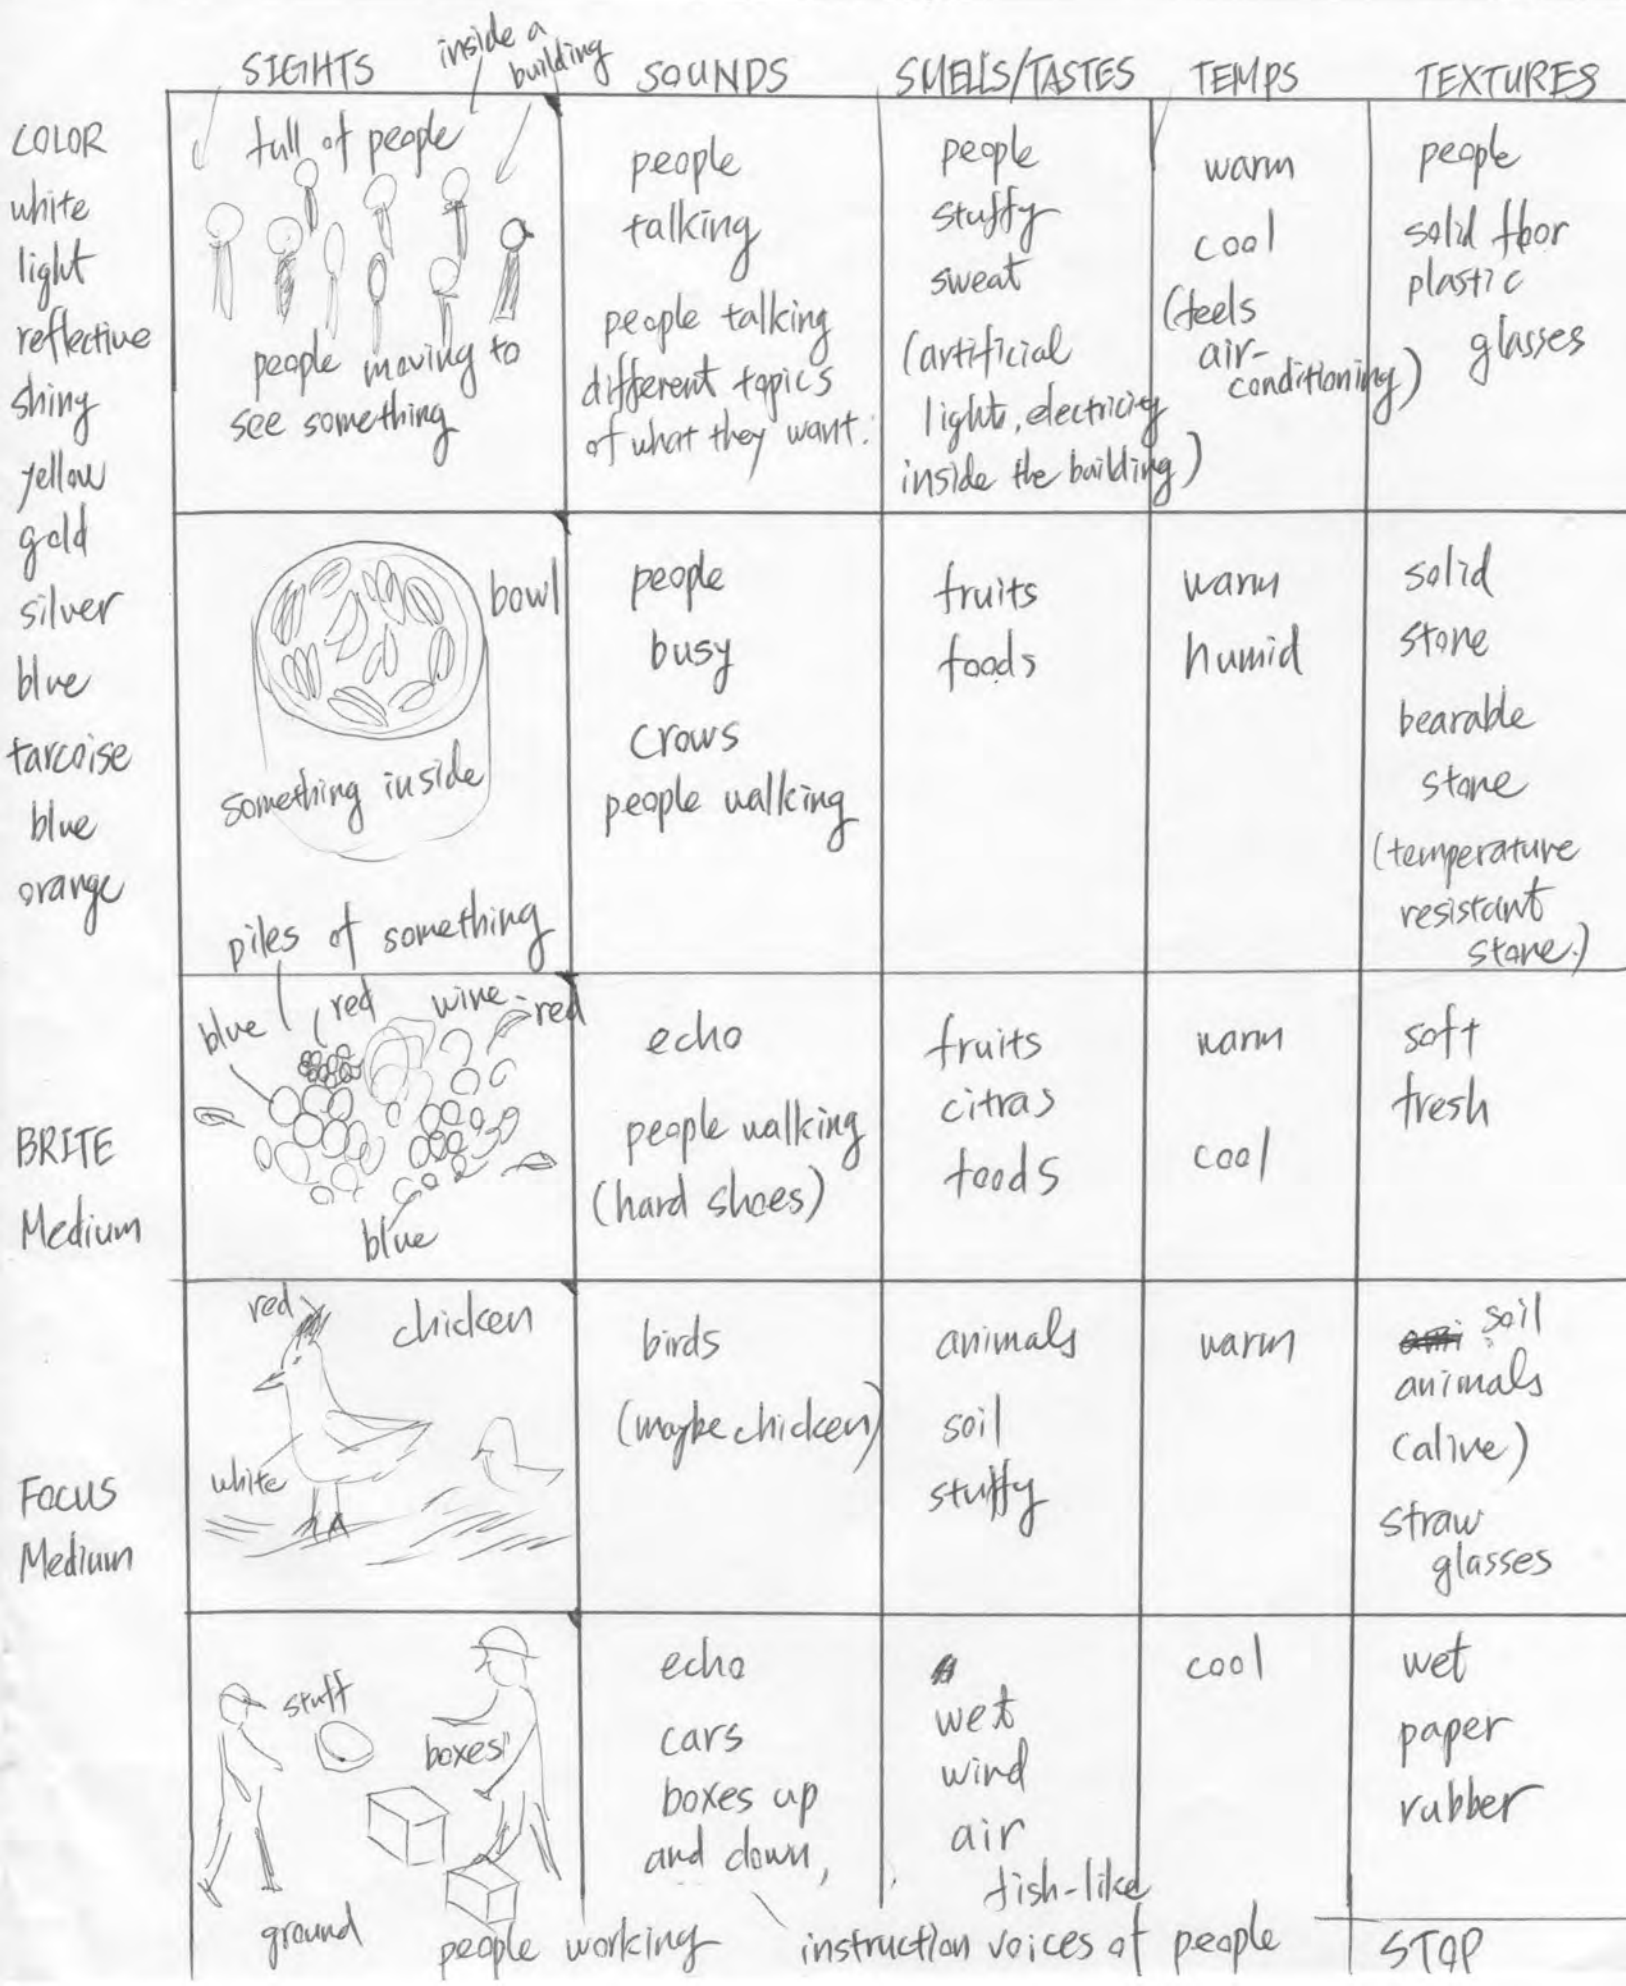 inside a
building
SIGHTS
SOUNDS
SMELLS/TASTES
TEMPS
TEXTURES
COLOR
white
light
reflective
shiny
yellow
gold
silver
blue
tarcoise
blue
orange
BRITE
Medium
FOCUS
Medium
full of people
people moving to
see something
people
talking
people talking
different topics
of what they want.
people
stuffy
sweat
(artificial
light, electricity
inside the building)
warm
cool
(feels
air-
conditioning)
people
solid floor
plastic
glasses
bowl
something inside
piles of something
people
busy
crows
people walking
fruits
foods
warm
humid
solid
stone
bearable
stone
(temperature
resistant
stone.)
blue
red
wine-red
blue
echo
people walking
(hard shoes)
fruits
citras
foods
warm
cool
soft
fresh
red
chicken
white
birds
(maybe chicken)
animals
soil
stuffy
warm
soil
animals
(alive)
straw
glasses
stuff
boxes
ground
people working
echo
cars
boxes up
and down,
instruction voices of people
wet
wind
air
fish-like
cool
wet
paper
rubber
STOP